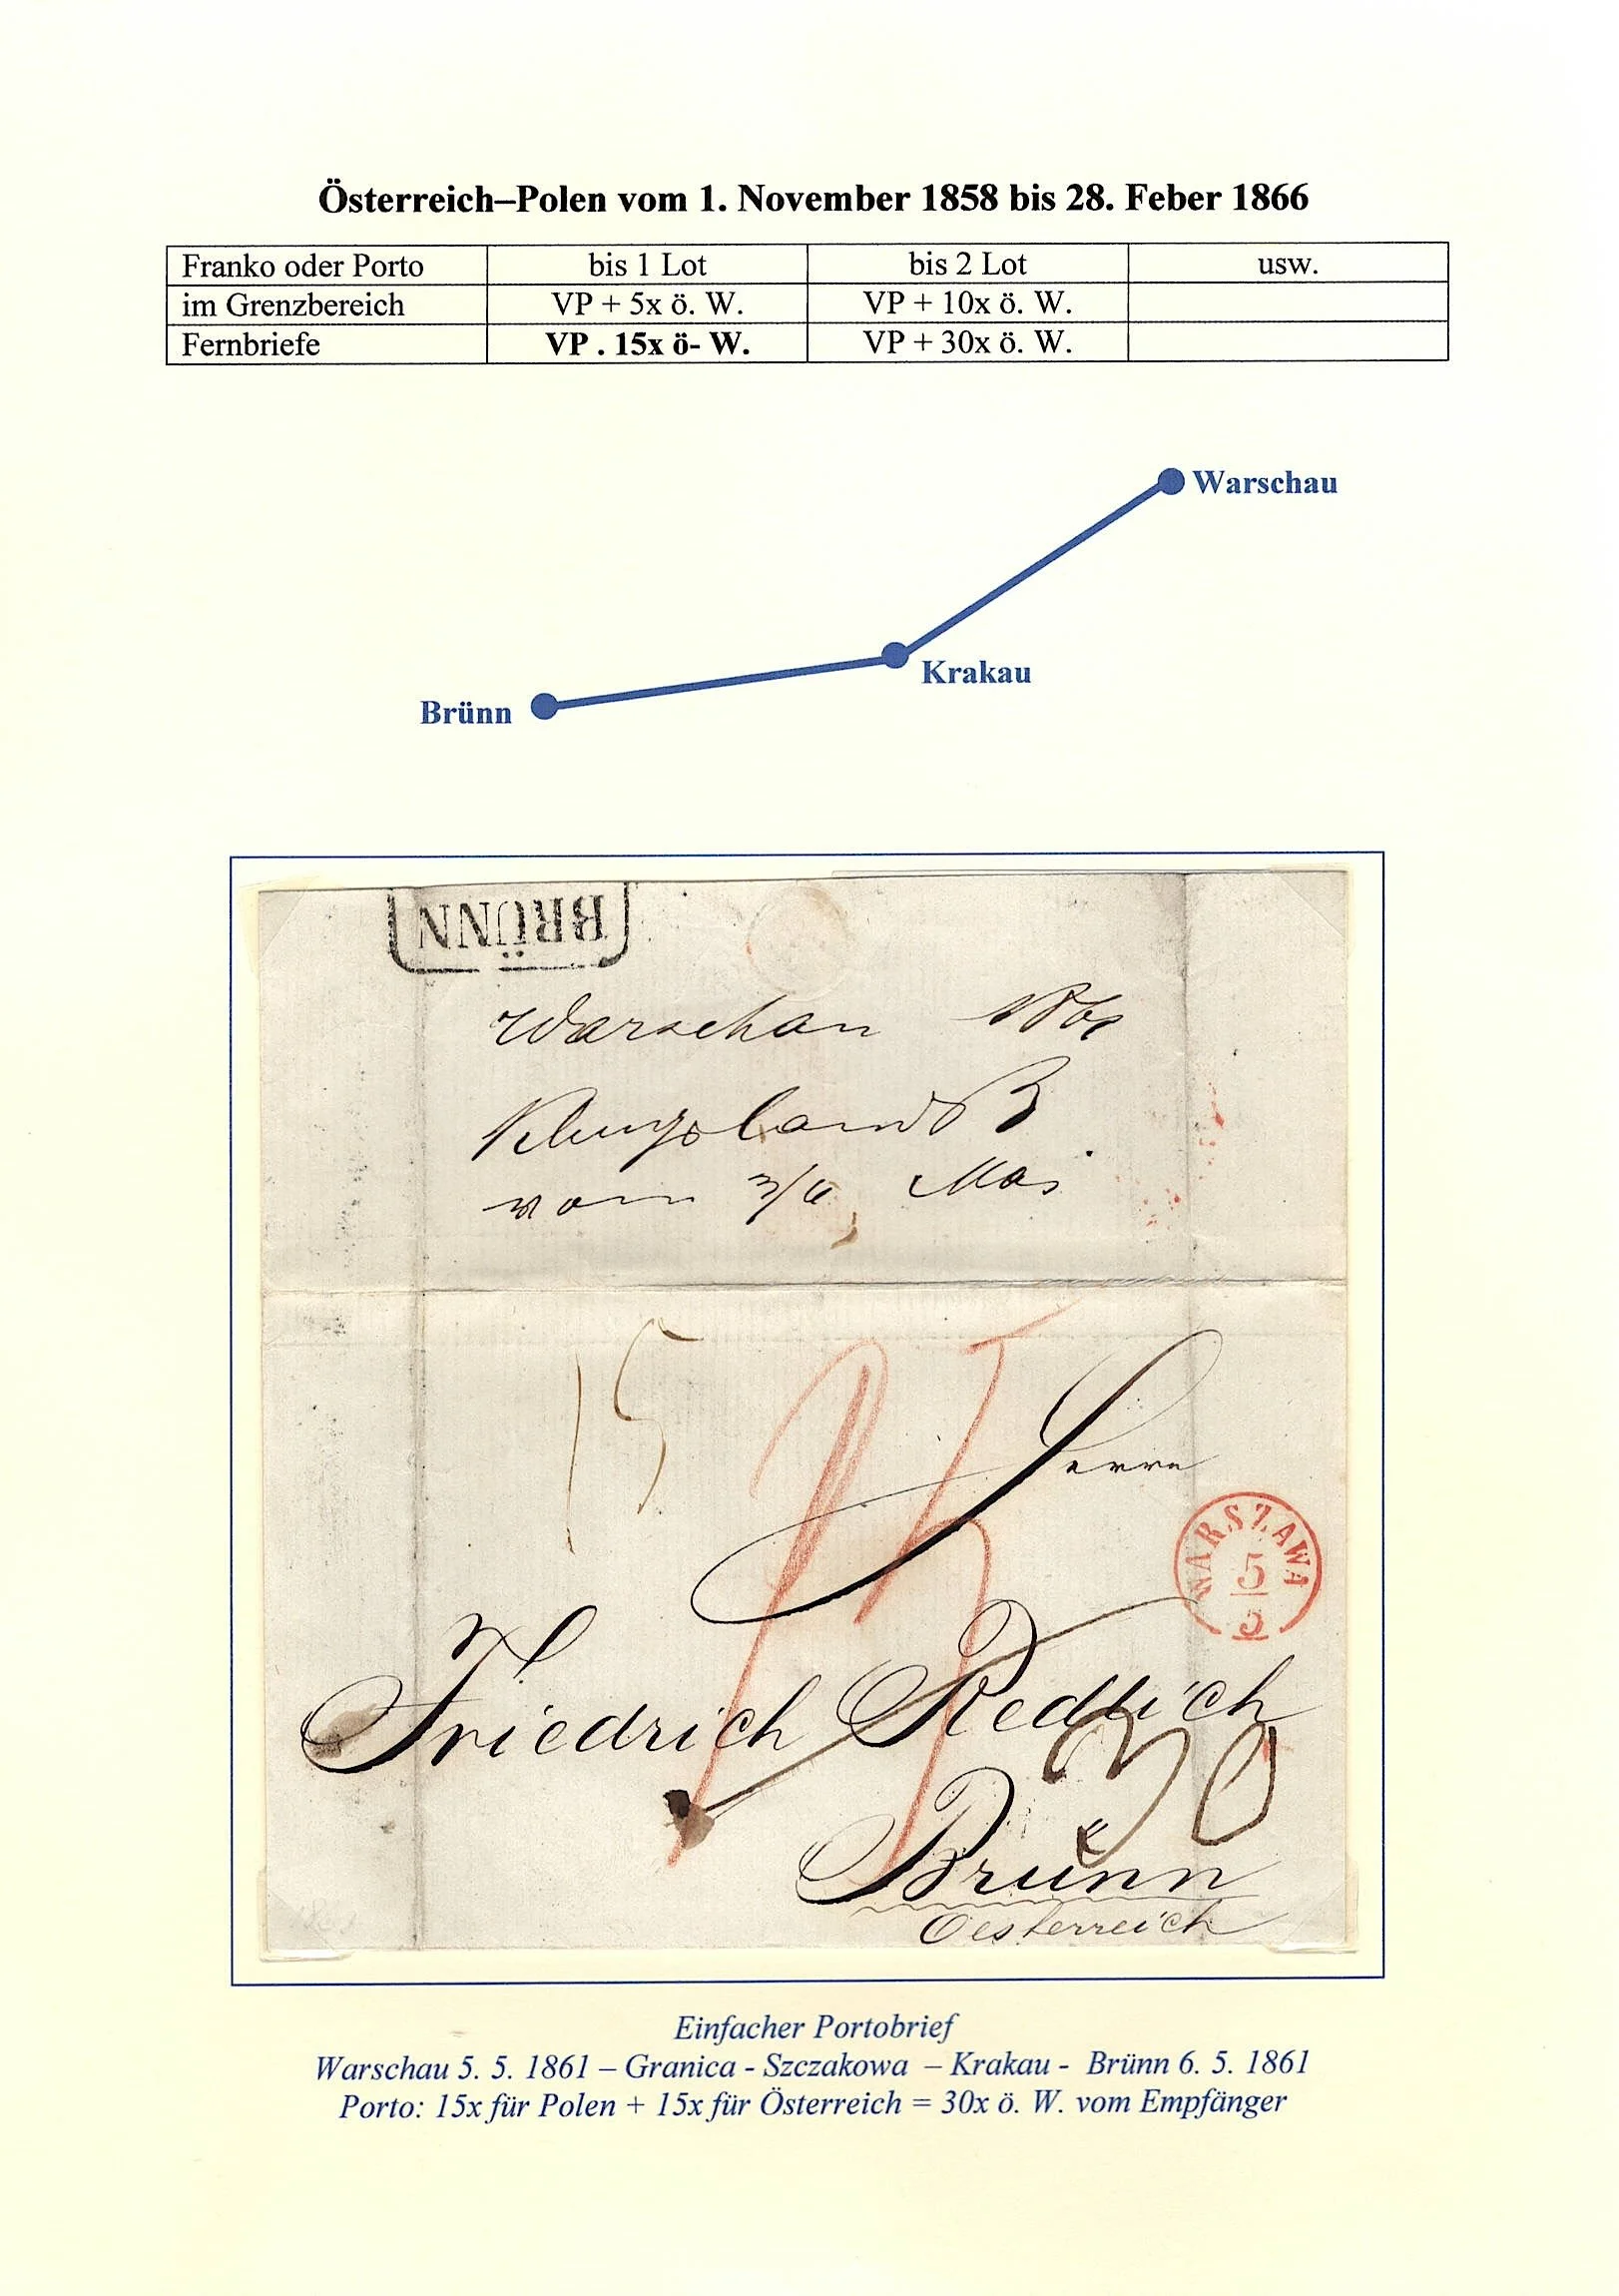 Österreich–Polen vom 1. November 1858 bis 28. Feber 1866
Franko oder Porto bis 1 Lot bis 2 Lot usw.
im Grenzbereich VP + 5x ö. W. VP + 10x ö. W.
Fernbriefe VP . 15x ö- W. VP + 30x ö. W.
Warschau
Krakau
Brünn
BRÜNN
Warschau 1861
vom 3/6 Mai
15
15
Herrn
WARSZAWA
5
5
Friedrich Redlich
30
Brünn
Oesterreich
Einfacher Portobrief
Warschau 5. 5. 1861 – Granica - Szczakowa – Krakau - Brünn 6. 5. 1861
Porto: 15x für Polen + 15x für Österreich = 30x ö. W. vom Empfänger